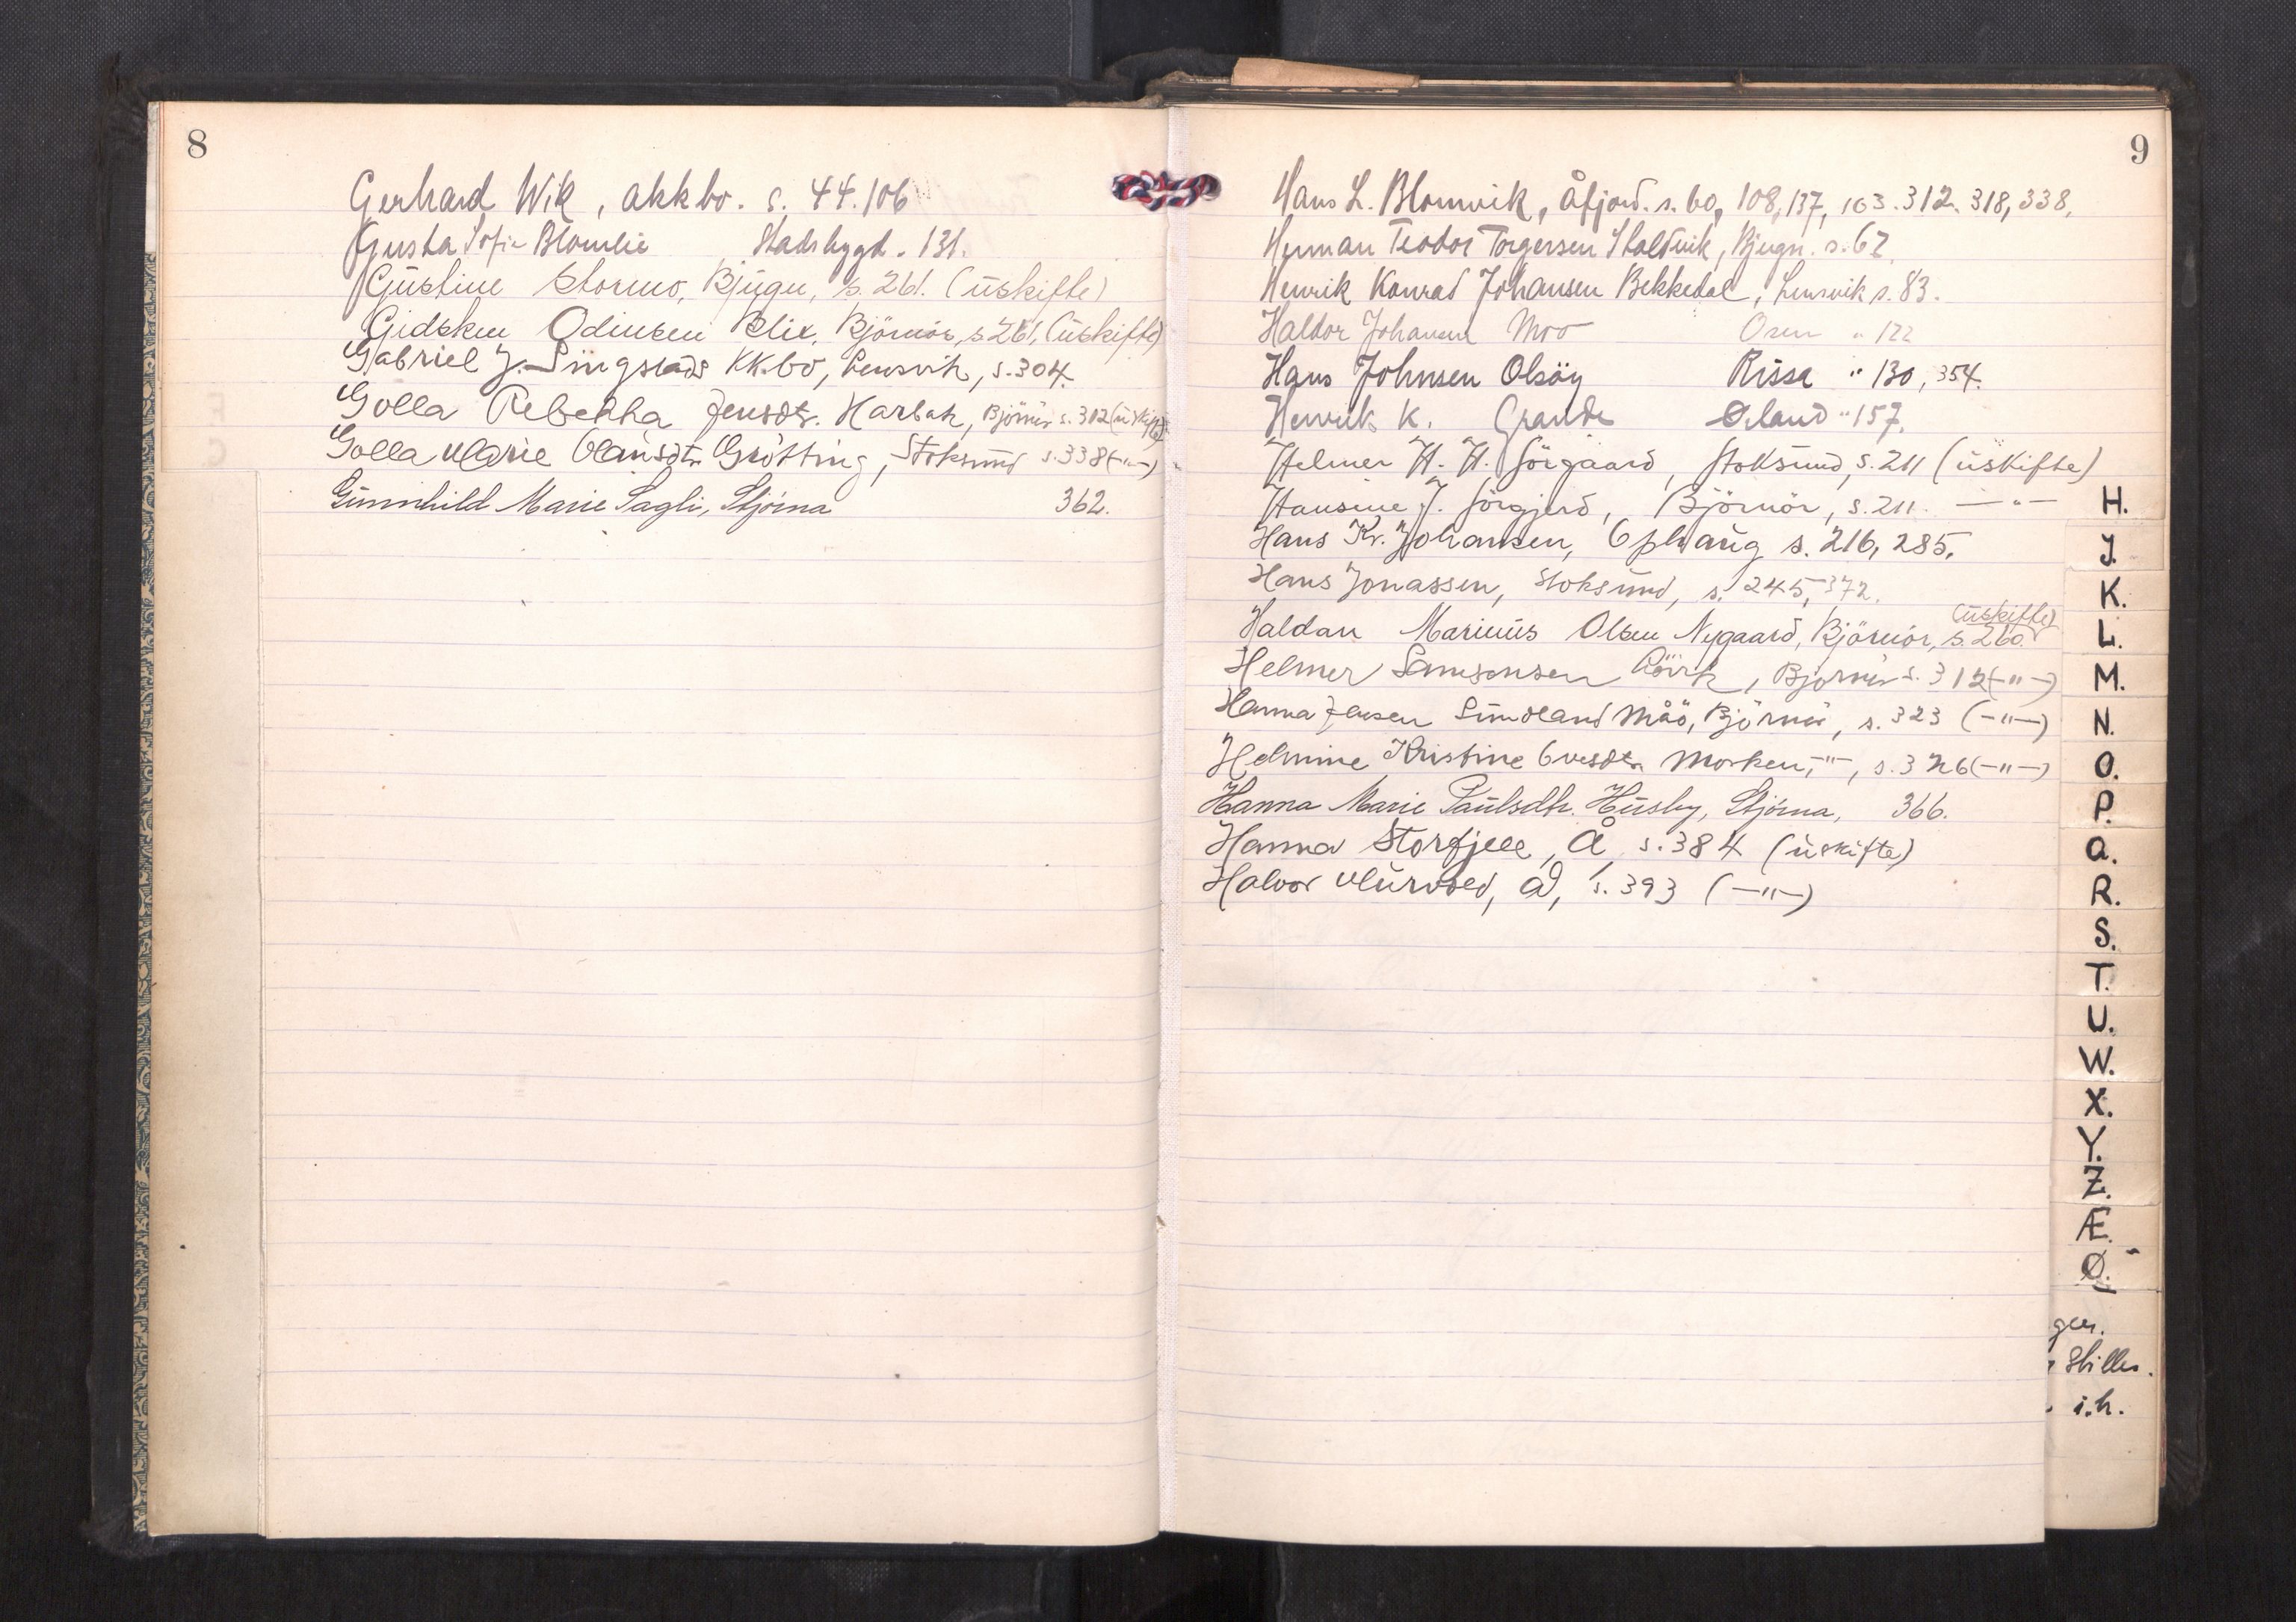 8
Gerhard Wik, akkbo. s. 44.106
Gusta Sofie Blomlie Stadsbygd. 131.
Gustine Stormo, Bjugn, s. 261. (uskifte)
Gidsken Odinsen Blix, Björnör, s 261, (uskifte)
Gabriel J. Singstads KK.bo, Lensvik, s. 304.
Golla Rebekka Jensdt. Harbak, Björnör s. 312 (uskifte)
Golla Marie Olausdtr. Grötting, Stoksund s. 338 (-"-)
Gunnhild Marie Sagli, Stjørna 362.
9
Hans L. Blomvik, Åfjord. s. 60, 108, 137, 163. 312. 318, 338.
Herman Teodor Torgersen, Bjugn. s. 67.
Henrik Konrad Johansen Bekkedal, Lensvik s. 83.
Haldor Johansen Moo Osen " 122
Hans Johnsen Olsöy Rissa " 130, 354.
Henrik K. Grande Ørland " 157.
Helmer H. H. Sörgaard, Stoksund, s. 211 (uskifte)
Hansine J. Sörgjerd, Björnör, s. 211. —"—
Hans Kr. Johansen, Ophaug s. 216, 285.
Hans Jonassen, Stoksund, s. 245, 372.
Haldan Marinus Olsen Nygaard, Björnör, s. 260. (uskifte)
Helmer Samsonsen, Björnör s. 312 (-"-)
Hanna Jensen Sundland Måö, Björnör, s. 323 (-"-)
Helmine Kristine Ovesdtr. Morken, -"-, s. 326 (-"-)
Hanna Marie Paulsdtr. Husby, Stjørna, 366.
Hanna Storfjell, Å, s. 384 (uskifte)
Halvor Murvold, Å, s. 393 (-"-)
H.
J.
K.
L.
M.
N.
O.
P.
Q.
R.
S.
T.
U.
W.
X.
Y.
Z.
Æ.
Ø.
ger.
i.h.